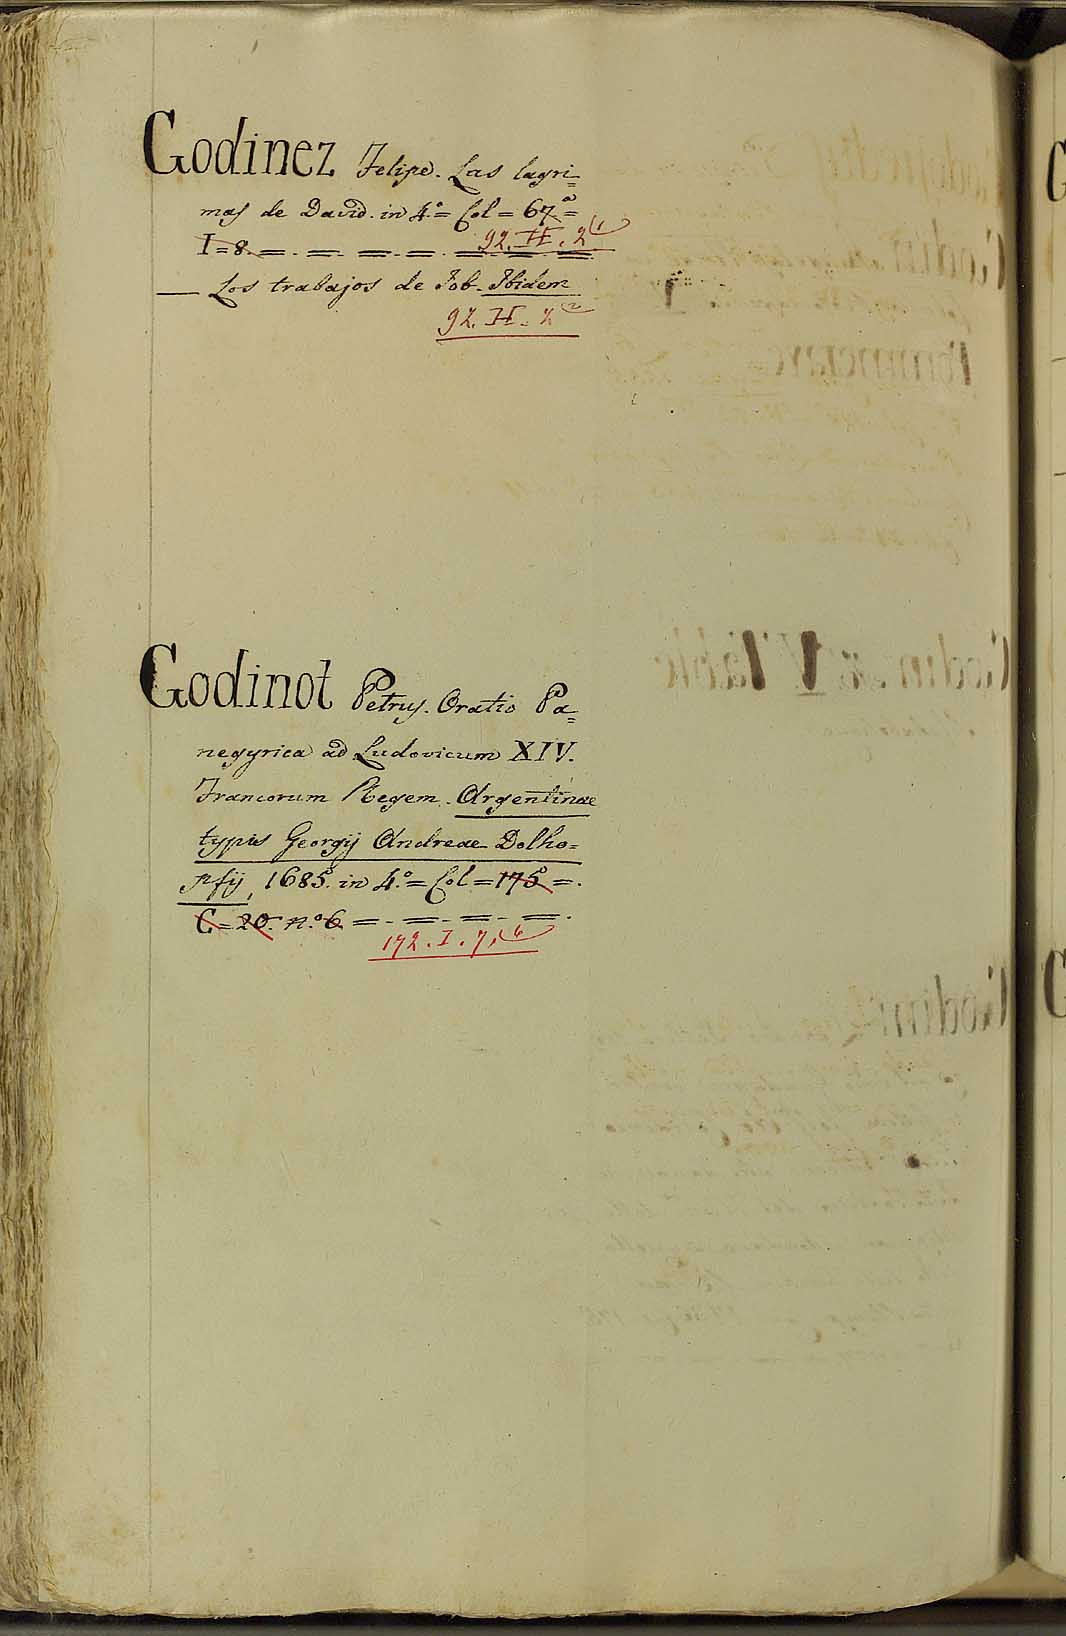 Godinez Felipe. Las lagri=
mas de David. in 4.º = Col = 67.ª =
I = 8. = . = . = . = . = . = . =
92. H. 2 (1
— Los trabajos de Job. Ibidem
92. H. 2 (2
Godinot Petrus. Oratio Pa=
negyrica ad Ludovicum XIV.
Francorum Regem. Argentinae
typis Georgij Andreae Dolho=
pfij, 1685. in 4.º = Col = 175 = .
C = 20. n.º 6 = . = . = . = .
172. I. 7, (6